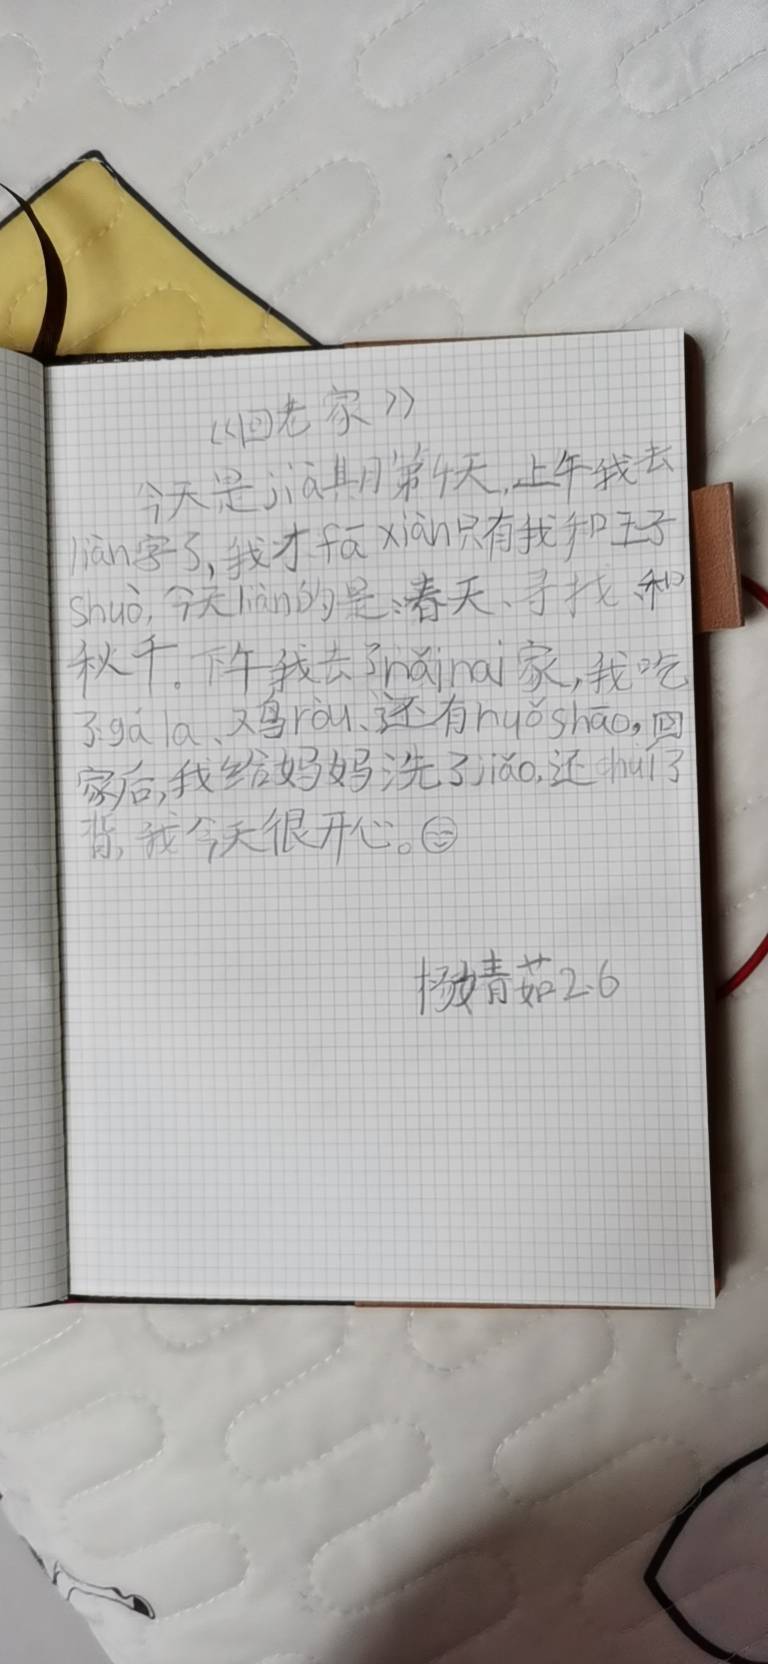 《回老家》
今天是jià期第4天,上午我去
liàn字了,我才fā xiàn只有我和王子
shuò,今天liàn的是:春天、寻找、和
秋千。下午我去了nǎinai家,我吃
了gá la、鸡ròu、还有huǒshāo,回
家后,我给妈妈洗了jiǎo,还chuí了
背,我今天很开心。
杨婧茹2.6